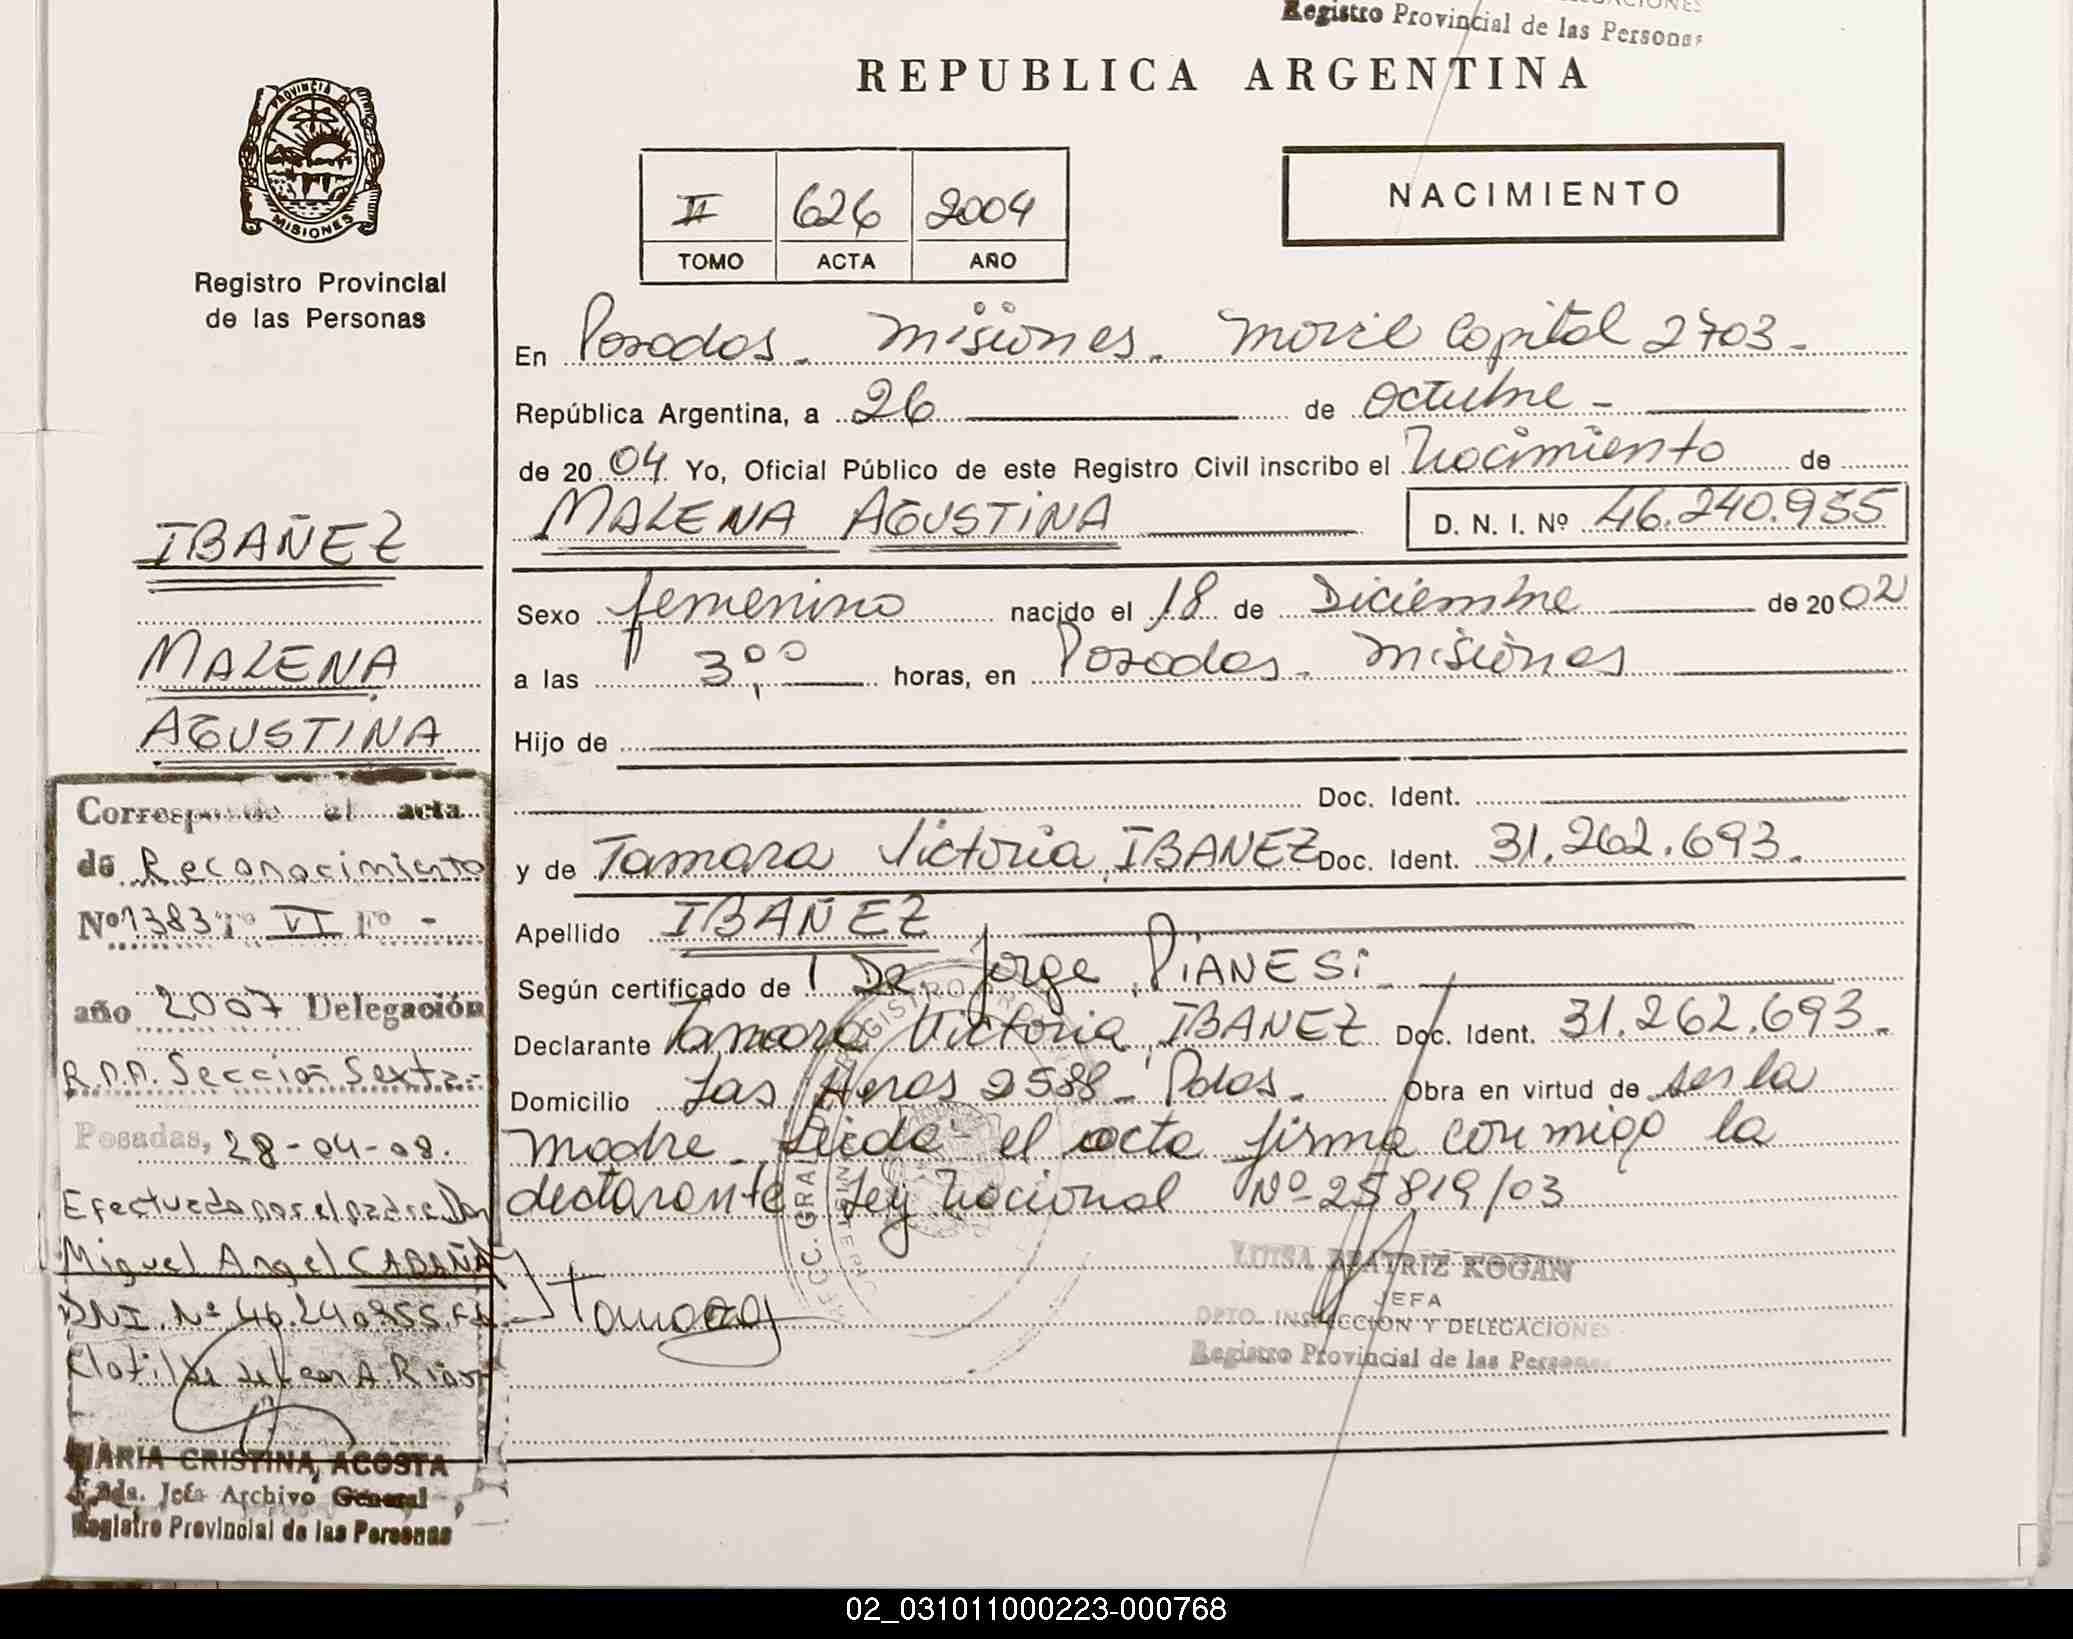 Registro Provincial de las Personas
REPUBLICA ARGENTINA
PROVINCIA DE
MISIONES
Registro Provincial
de las Personas
II 626 2004
TOMO ACTA AÑO
NACIMIENTO
En Posadas - Misiones - Movil Capital 2703 -
República Argentina, a 26 de Octubre -
de 20 04 Yo, Oficial Público de este Registro Civil inscribo el Nacimiento de
MALENA AGUSTINA D. N. I. Nº 46.240.955
IBAÑEZ
MALENA
AGUSTINA
Sexo femenino nacido el 18 de Diciembre de 20 02
a las 3,00 horas, en Posadas - Misiones
Hijo de
Doc. Ident.
y de Tamara Victoria IBAÑEZ Doc. Ident. 31.262.693.
Apellido IBAÑEZ
Según certificado de Jorge PIANESI
Declarante Tamara Victoria IBAÑEZ Doc. Ident. 31.262.693 -
Domicilio Las Heras 2588 - Pdas. Obra en virtud de ser la
madre - Leída el acta firma conmigo la
declarante Ley Nacional Nº 25819/03
LUISA BEATRIZ KOGAN
JEFA
DPTO. INSPECCION Y DELEGACIONES
Registro Provincial de las Personas
Corresponde al acta
de Reconocimiento
Nº 1383 Tº VI Fº -
año 2007 Delegación
R.P.P. Sección Sexta -
Posadas, 28-04-08.
Efectuado por el padre Don
Miguel Angel CABAÑA
DNI. Nº 46.240955
MARIA CRISTINA ACOSTA
Jefa Archivo General
Registro Provincial de las Personas
02_031011000223-000768